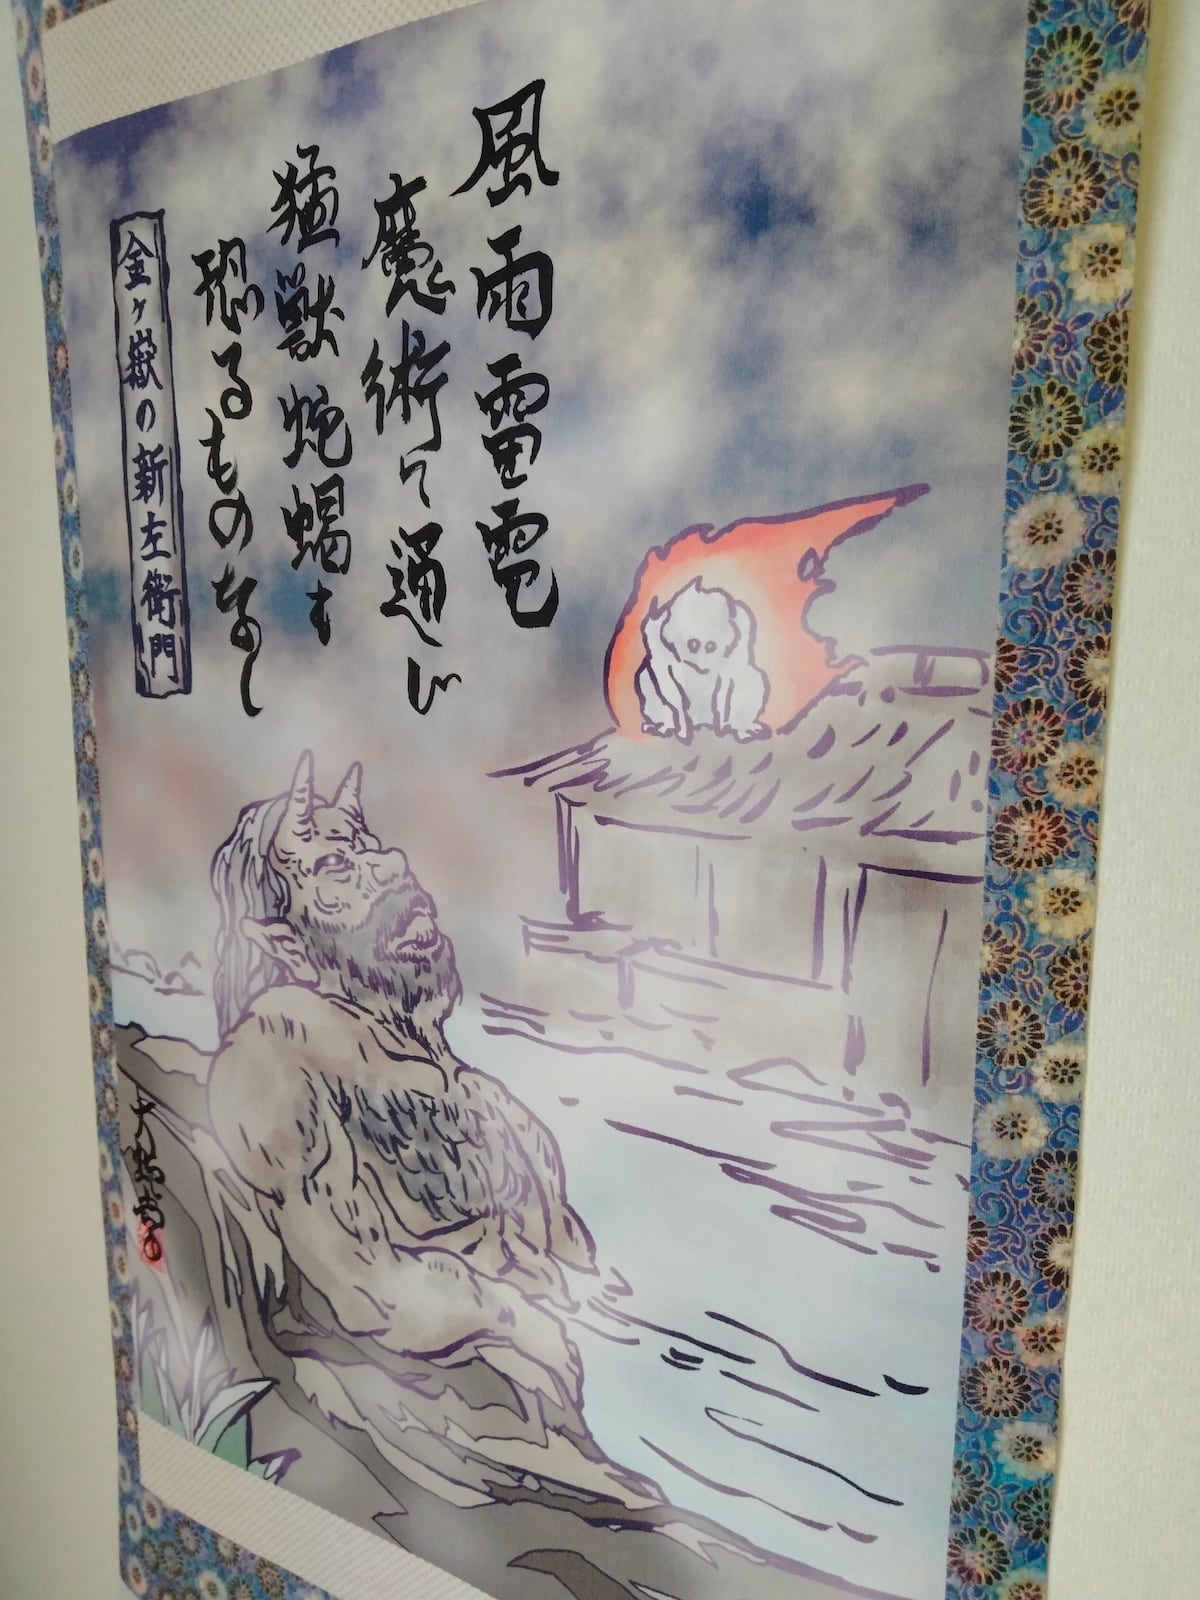 風雨雷電
魔術て通じ
猛獣蛇蝎も
恐るものなし
金ヶ嶽の新左衛門